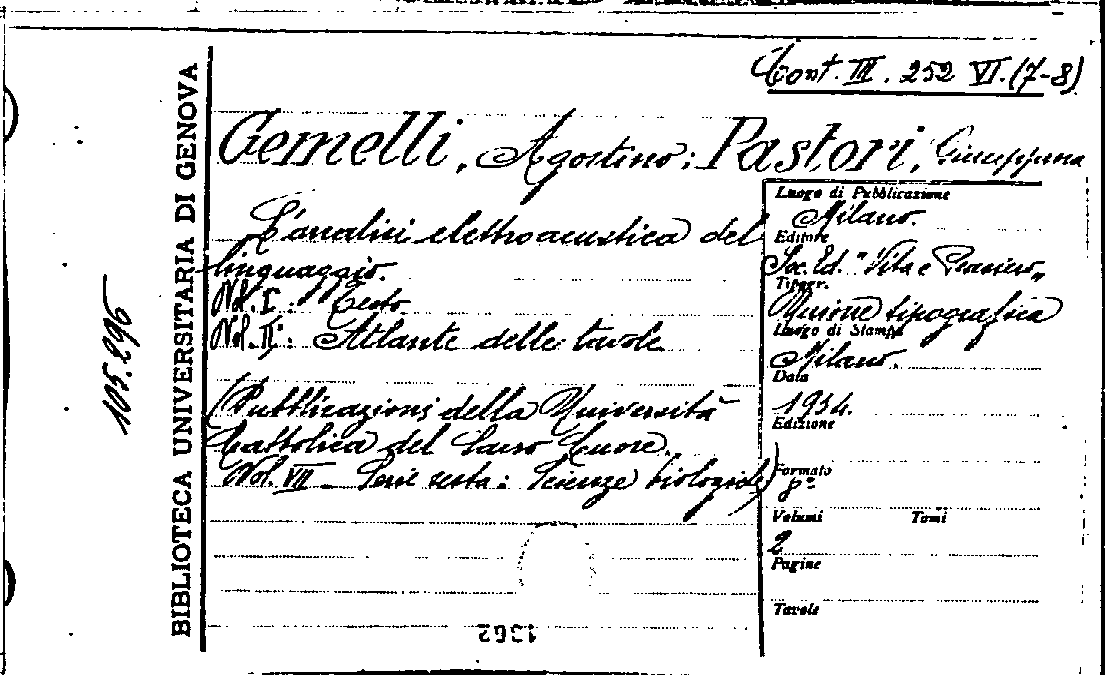 Cont. III. 252 VI. (7-8)
Gemelli, Agostino; Pastori, Giuseppina
L'analisi elettroacustica del
linguaggio.
Vol. I: Testo
Vol. II: Atlante delle tavole
(Pubblicazioni della Università
Cattolica del Sacro Cuore.
Vol. VII – Serie sesta: Scienze biologiche)
Luogo di Pubblicazione
Milano.
Editore
Soc. Ed. "Vita e Pensiero"
Tipogr.
Unione tipografica
Luogo di Stampa
Milano.
Data
1934.
Edizione
Formato
8°
Volumi Tomi
2
Pagine
Tavole
BIBLIOTECA UNIVERSITARIA DI GENOVA
105.296
1362